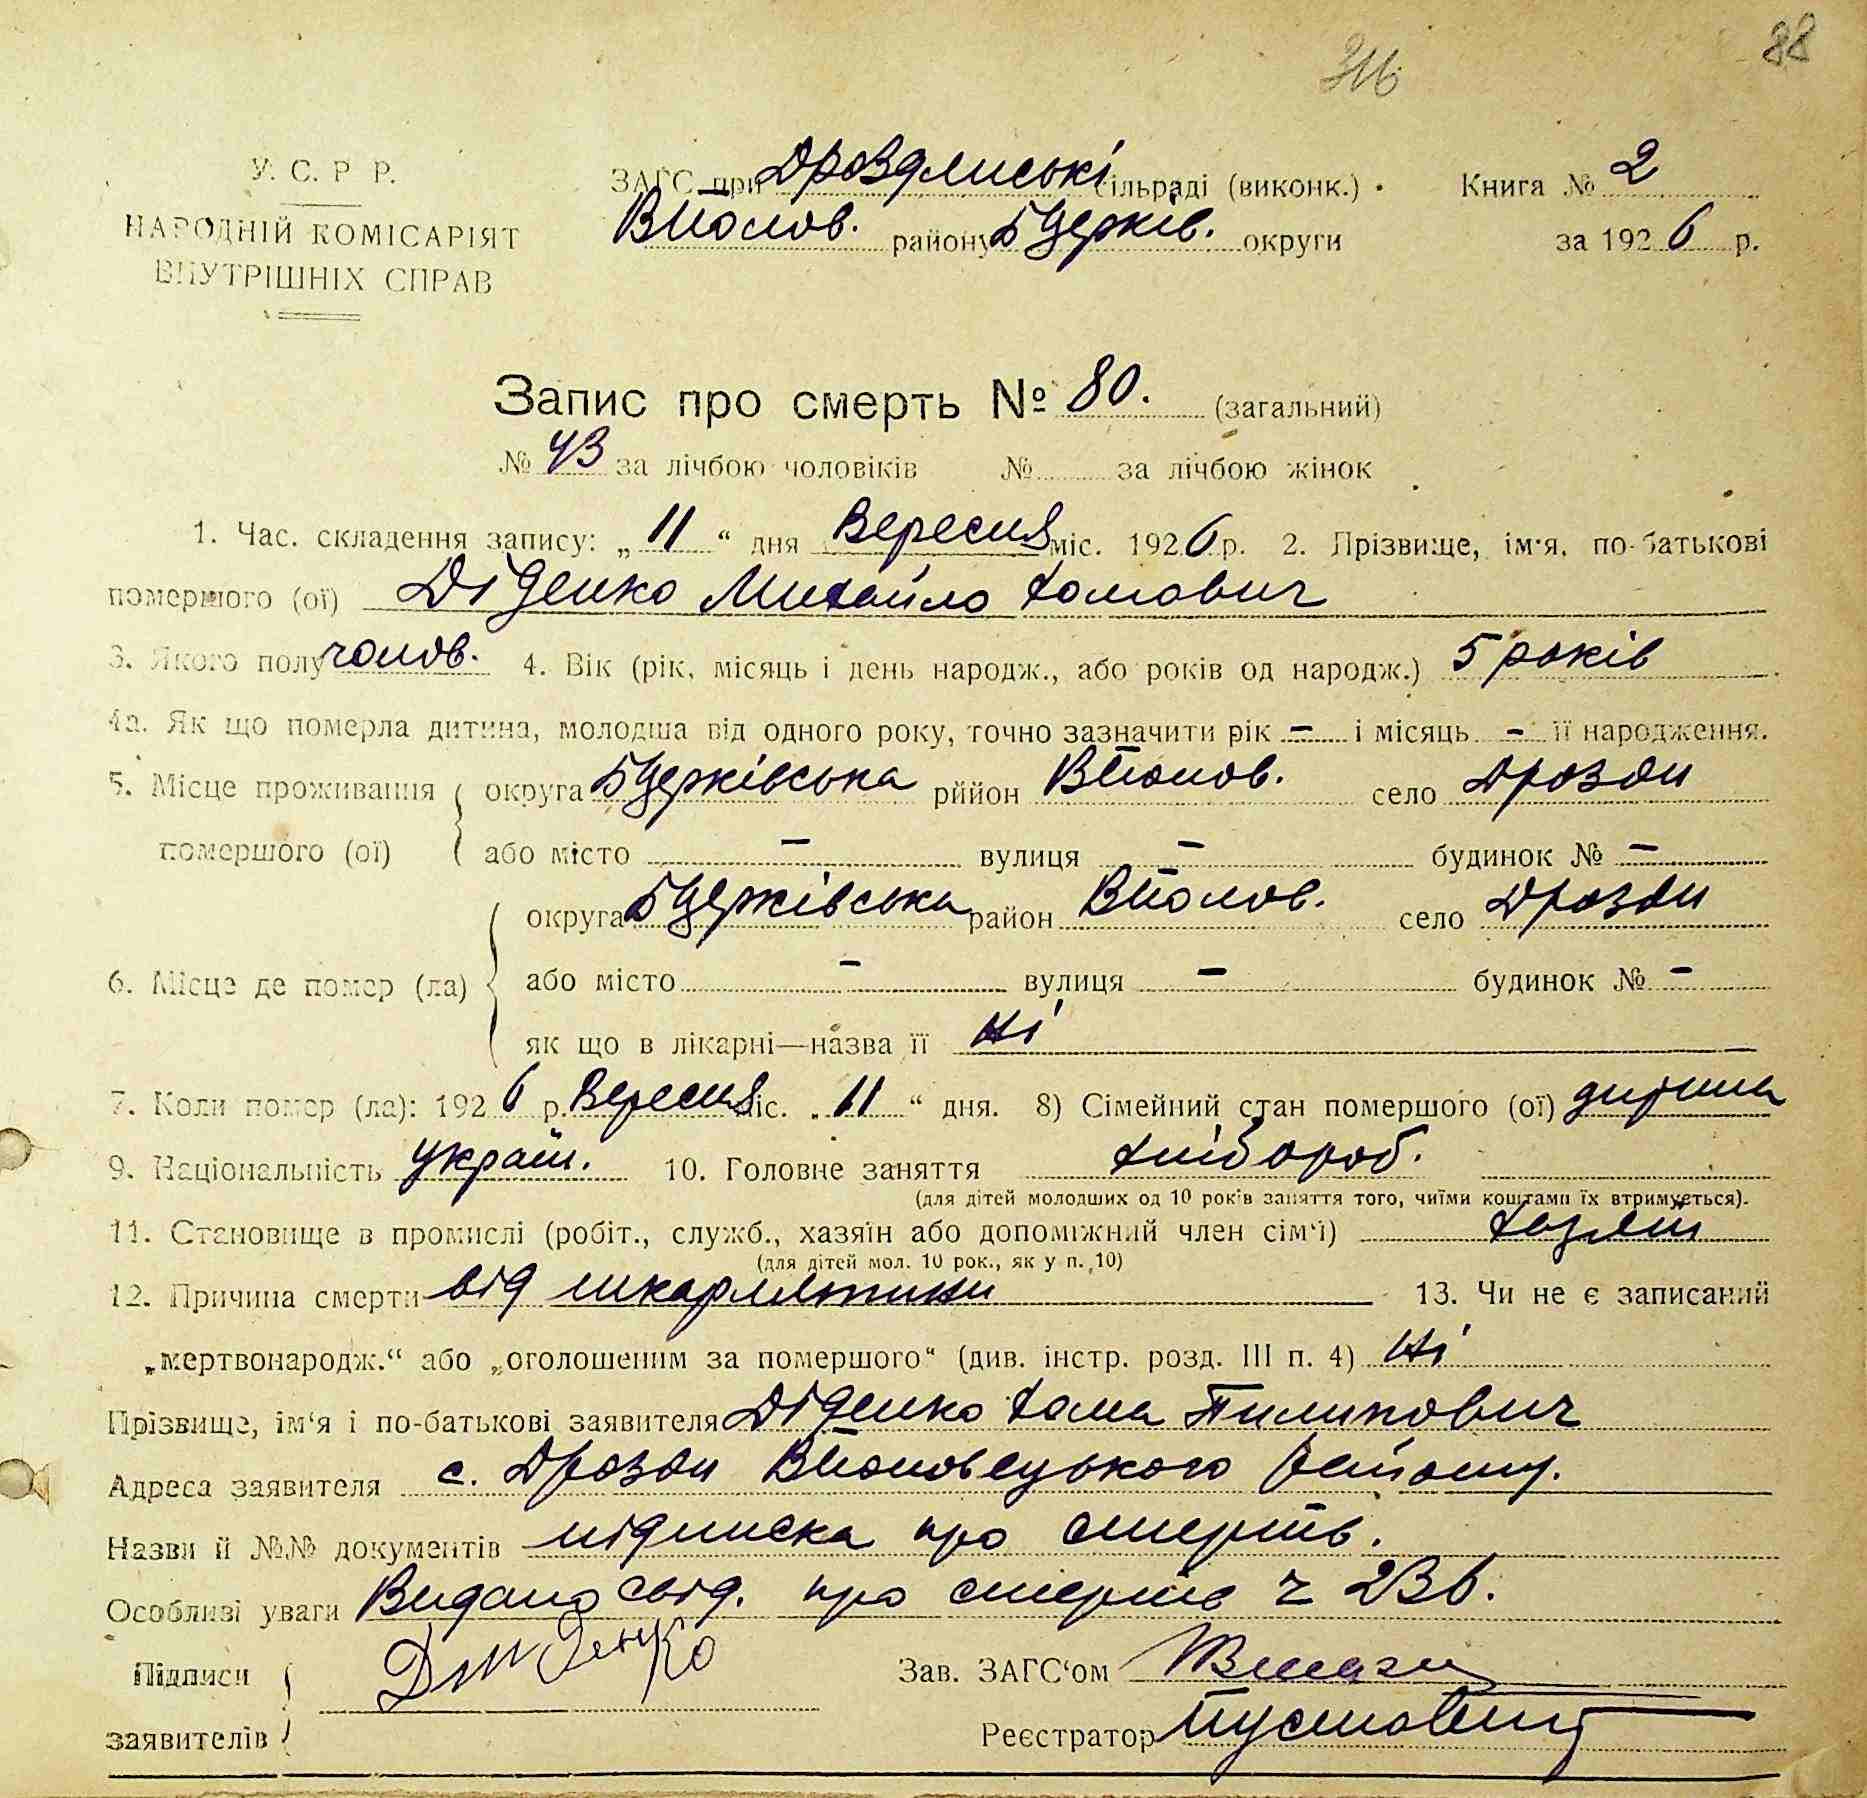 88
316
У. С. Р Р.
НАРОДНІЙ КОМІСАРІЯТ
ВНУТРІШНІХ СПРАВ
ЗАГС при Дроздянські сільраді (виконк.) Книга № 2
ВПолов. району БЦерків. округи за 1926 р.
Запис про смерть № 80. (загальний)
№ 43 за лічбою чоловіків № за лічбою жінок
1. Час. складення запису: „11“ дня Вересня міс. 1926 р. 2. Прізвище, ім'я, по-батькові
помершого (ої) Діденко Михайло Хомович
3. Якого полу чолов. 4. Вік (рік, місяць і день народж., або років од народж.) 5 років
4а. Як що померла дитина, молодша від одного року, точно зазначити рік — і місяць — її народження.
5. Місце проживання помершого (ої) округа БЦерківська рййон ВПолов. село Дрозди
або місто — вулиця — будинок № —
6. Місце де помер (ла) округа БЦерківська район ВПолов. село Дрозди
або місто — вулиця — будинок № —
як що в лікарні—назва її Ні
7. Коли помер (ла): 1926 р. Вересня міс. „11“ дня. 8) Сімейний стан помершого (ої) дитина
9. Національність україн. 10. Головне заняття хлібороб.
(для дітей молодших од 10 років заняття того, чиїми коштами їх втримується).
11. Становище в промислі (робіт., служб., хазяїн або допоміжний член сім'ї) хазяїн
(для дітей мол. 10 рок., як у п. 10)
12. Причина смерти від шкарлятини 13. Чи не є записаний
„мертвонародж.“ або „оголошеним за помершого“ (див. інстр. розд. III п. 4) Ні
Прізвище, ім'я і по-батькові заявителя Діденко Хома Пилипович
Адреса заявителя с. Дрозди ВПоловецького Району.
Назви й №№ документів підписка про смерть.
Особливі уваги Видано свід. про смерть ч 236.
Підписи заявителів Диденко Зав. ЗАГС'ом
Реєстратор Пустовіт